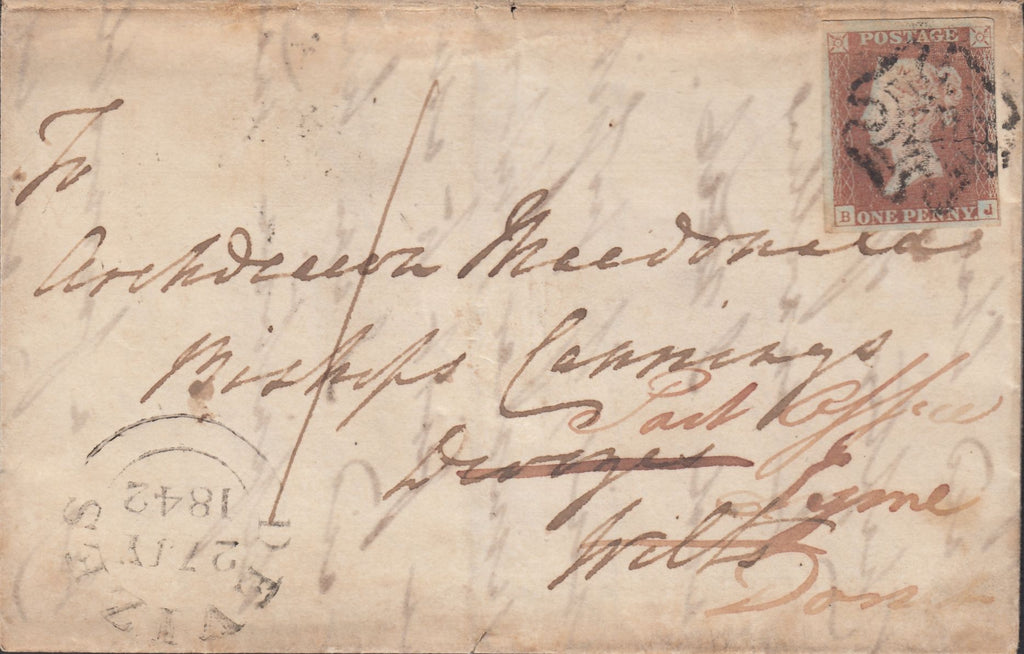 POSTAGE
B ONE PENNY J
To
Archdeacon Macdonald
Bishops Cannings
Post Office
Devizes
Lyme
Wilts
Dorset
DEVIZES
27 JY
1842